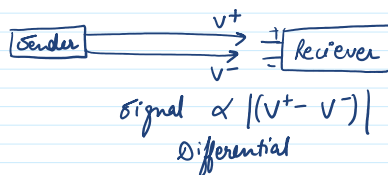 V⁺
Sender
+
Reciever
-
V⁻
Signal ∝ |(V⁺ - V⁻)|
Differential